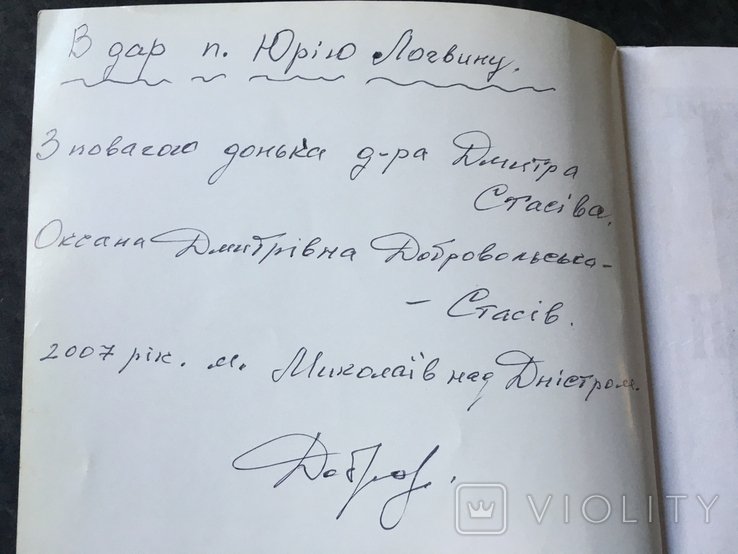 В дар п. Юрію Логвину.
З повагою донька д-ра Дмитра
Стасіва.
Оксана Дмитрівна Добровольська-
- Стасів.
2007 рік. м. Миколаїв над Дністром.
VIOLITY